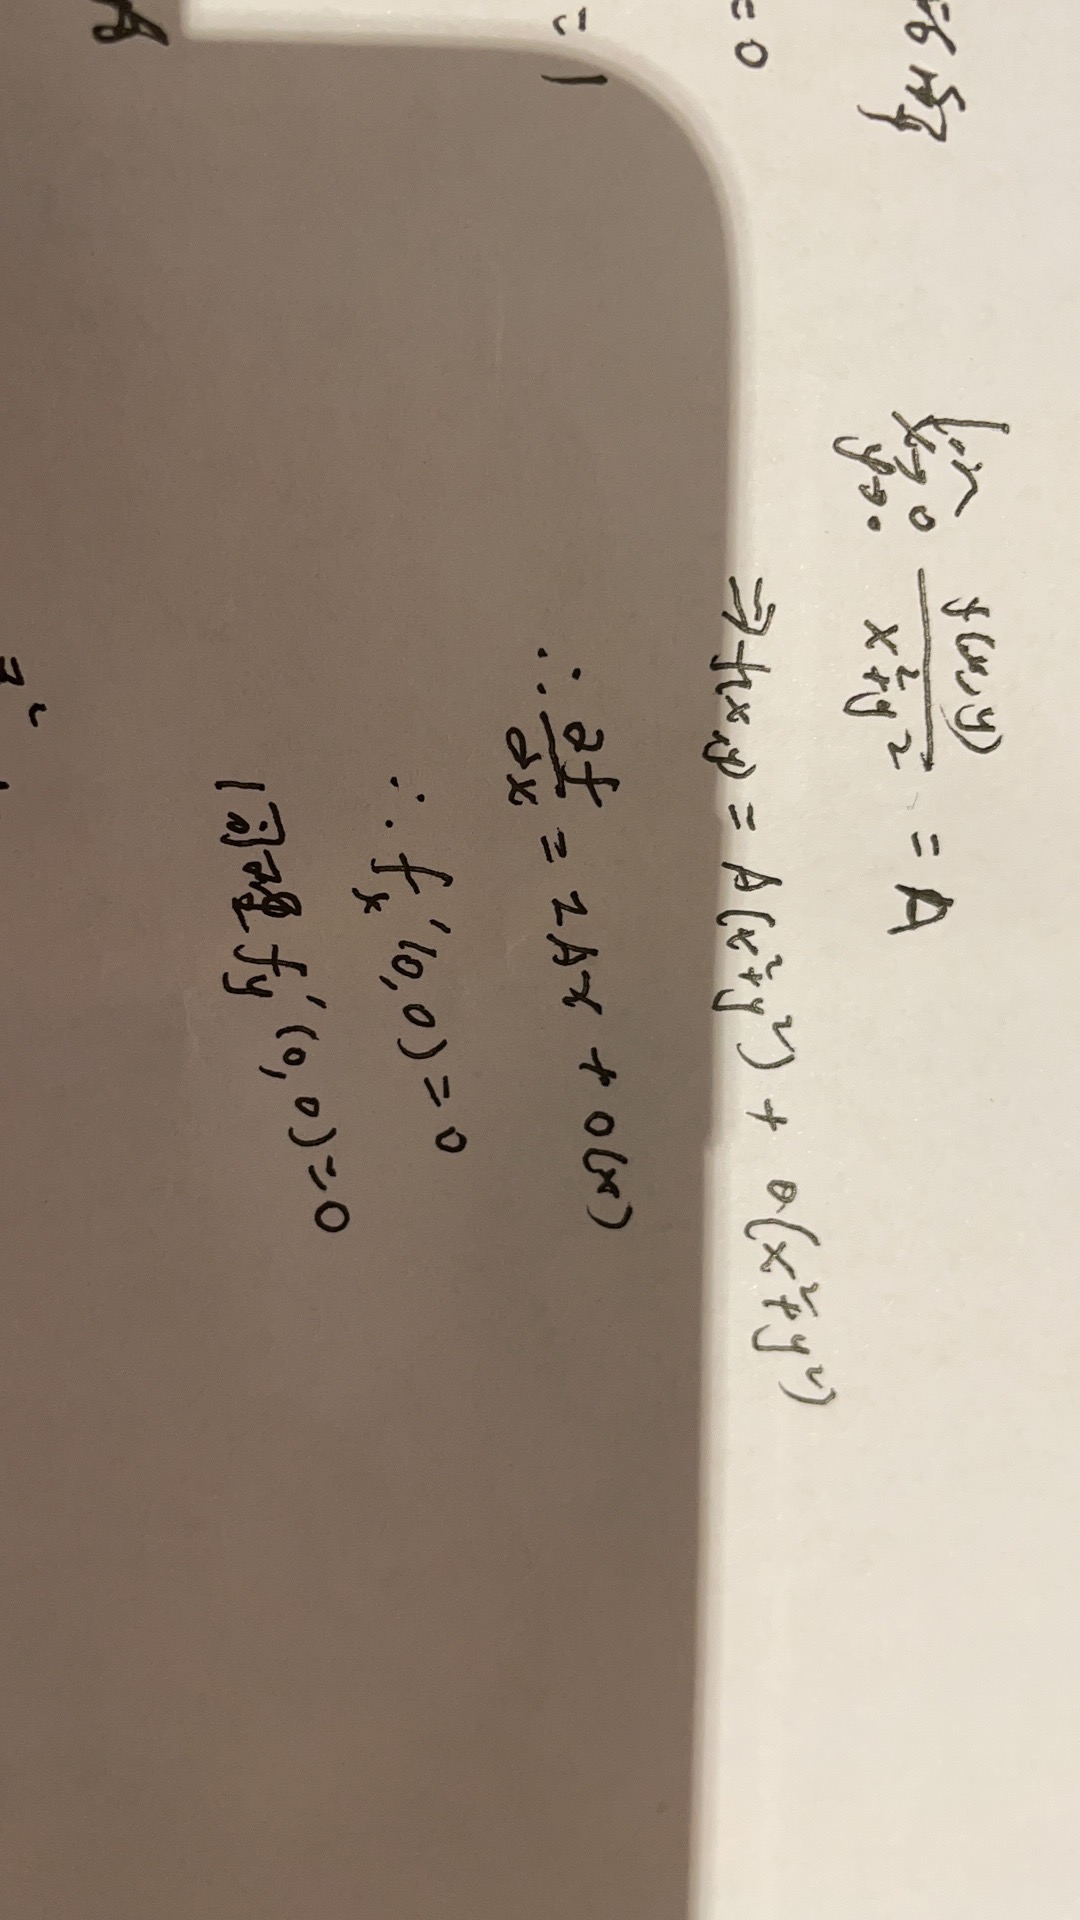 = 0
= 1
lim x→0 y→0 f(x,y) / x²+y² = A
⇒ f(x,y) = A(x²+y²) + o(x²+y²)
∴ ∂f/∂x = 2Ax + o(x)
∴ fx'(0,0) = 0
同理 fy'(0,0) = 0